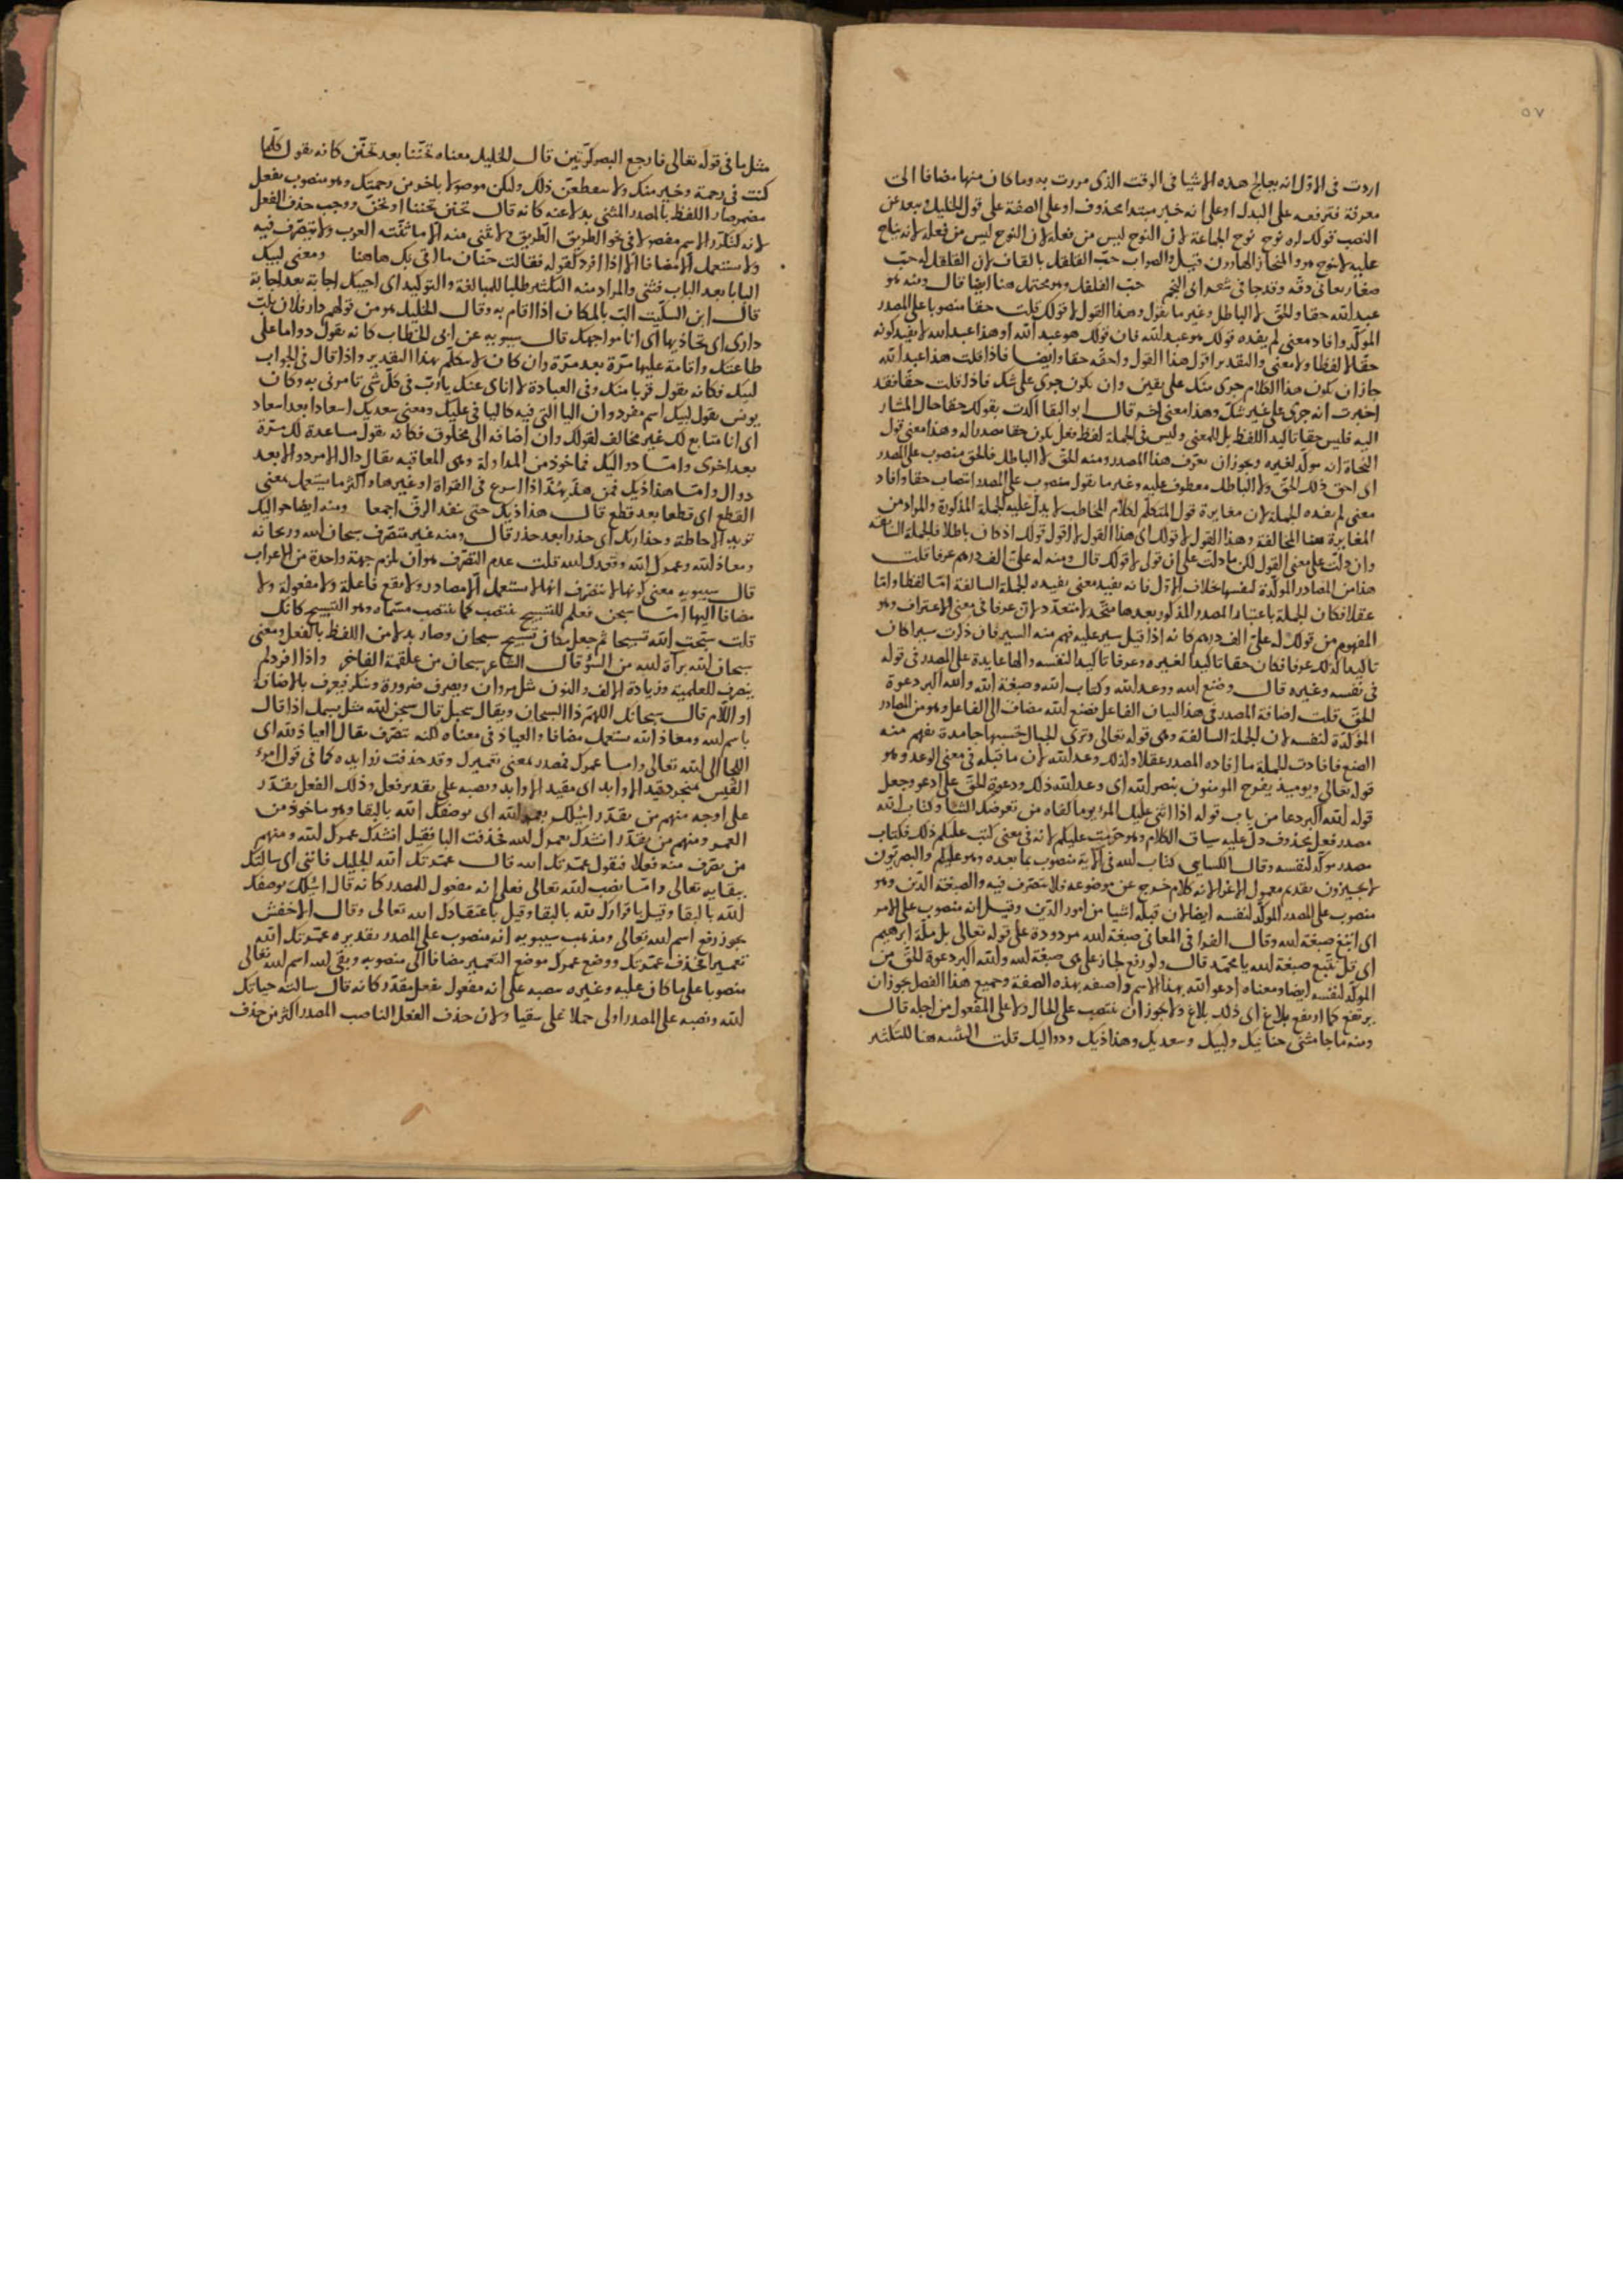 ٥٧
اردت فى الاول انه يعالج هذه الاشيا فى الوقت الذى مررت به وما كان منها مضافا الى
معرفة فترفعه على البدل او على انه خبر مبتدا محذوف او على الصفة على قول الخليل ويبعد عن
النصب قولك له نوح نوح الجماعة لان النوح ليس من فعله لان النوح ليس من فعله لانه يناح
عليه لا ينوح هو والمنحاز الهاوون قيل والصواب حب القلقل بالقاف لان القلقل له حب
صغار يعانى دقه وقد جا فى شعر ابى النجم حب الفلفل وهو محتمل هنا ايضا قال ومنه هو
عبد الله حقا والحق لا الباطل وغير ما تقول وهذا القول لا قولك قلت حقا منصوبا على المصدر
المؤكد وافاد معنى لم يفده قولك هو عبد الله فان قولك هو عبد الله او هذا عبد الله لا يفيد كونه
حقا لا لفظا ولا معنى والتقدير اقول هذا القول واحقه حقا وايضا فاذا قلت هذا عبد الله
جاز ان يكون هذا الكلام جرى منك على يقين وان يكون جرى على شك فاذا قلت حقا فقد
اخبرت انه جرى على غير شك وهذا معنى اخر قال ابو البقا اكدت بقولك حقا حال المشار
اليه فليس حقا تاكيد اللفظ بل للمعنى وليس فى الجملة لفظ فعل يكون حقا مصدرا له وهذا معنى قول
النحاة انه مؤكد لغيره ويجوز ان يعرف هذا المصدر ومنه الحق لا الباطل فالحق منصوب على المصدر
اى احق ذلك الحق ولا الباطل معطوف عليه وغير ما تقول منصوب على المصدر انتصاب حقا وافاد
معنى لم يفده الجملة لان مغايرة قول المتكلم لكلام المخاطب لا يدل عليه الجملة المذكورة والمراد من
المغايرة هنا المخالفة وهذا القول لا قولك اى هذا القول لا اقول قولك اذ كان باطلا فالجملة السابقة
وان دلت على معنى القول لكن ما دلت على ان قولى لا قولك قال ومنه له على الف درهم عرفا قلت
هذا من المصادر المؤكدة لنفسها خلاف الاول فانه يفيد معنى يفيده الجملة السالفة اما لفظا واما
عقلا فكان الجملة باعتبار المصدر المذكور بعدها متحد لا متعدد لان عرفا فى معنى الاعتراف وهو
المفهوم من قولك له على الف درهم كانه اذا قيل سير عليه فهم منه السير فان ذكرت سيرا كان
تاكيدا كذلك عرفا فكان حقا تاكيدا لغيره وعرفا تاكيدا لنفسه والها عايدة على المصدر فى قوله
فى نفسه وغيره قال وصنع الله ووعد الله وكتاب الله وصبغة الله والله اكبر دعوة
الحق قلت اضافة المصدر فى هذا لبيان الفاعل فصنع الله مضاف الى الفاعل وهو من المصادر
المؤكدة لنفسه لان الجملة السالفة وهى قوله تعالى وترى الجبال تحسبها جامدة يفهم منه
الصنع فافادت الجملة ما افاده المصدر عقلا وكذلك وعد الله لان ما قبله فى معنى الوعد وهو
قوله تعالى ويوميذ يفرح المومنون بنصر الله اى وعد الله ذلك ودعوة الحق على ادعو وجعل
قوله الله اكبر دعا من باب قوله اذا اثنى عليك المرء يوما كفاه من تعرضك الثنا وكتاب الله
مصدر فعل محذوف دل عليه سياق الكلام وهو حرمت عليكم لانه فى معنى كتب عليكم ذلك فكتاب
مصدر مؤكد لنفسه وقال الكساى كتاب الله فى الاية منصوب بما بعده وهو عليكم والبصريون
لا يجيزون تقديم معمول الاغرا لانه كلام خرج عن موضوعه فلا يتصرف فيه والصبغة الدين وهو
منصوب على المصدر المؤكد لنفسه ايضا لان قبله اشيا من امور الدين وقيل انه منصوب على الامر
اى اتبع صبغة الله وقال الفرا فى المعانى صبغة الله مردودة على قوله تعالى بل ملة ابرهيم
اى قل نتبع صبغة الله يا محمد قال ولو رفع لجاز على هى صبغة الله والله اكبر دعوة الحق من
المؤكد لنفسه ايضا ومعناه ادعو الله بهذا الاسم واصفه بهذه الصفة وجميع هذا الفصل يجوز ان
يرتفع كما ارتفع بلاغ اى ذلك بلاغ ولا يجوز ان ينتصب على الحال ولا على المفعول من اجله قال
ومنه ما جا مثنى حنانيك ولبيك وسعديك وهذاذيك ودواليك قلت التثنية هنا للتكثير
مثل ما فى قوله تعالى فارجع البصر كرتين قال الخليل معناه تحننا بعد تحنن كانه يقول كلما
كنت فى رحمة وخير منك ولا ينقطعن ذلك وليكن موصولا باخر من رحمتك وهو منصوب بفعل
مضمر صار اللفظ بالمصدر المثنى بدلا عنه كانه قال تحنن تحننا او نحن ووجب حذف الفعل
لانه كتكرر الاسم مفصولا فى نحو الطريق الطريق ولا يثنى منه الا ما ثنته العرب ولا يتصرف فيه
ولا يستعمل الا مضافا الا اذا افرد كقوله فقالت حنان ما اتى بك هاهنا ومعنى لبيك
البابا بعد الباب فثنى والمراد منه التكثير طلبا للمبالغة والتوكيد اى اجيبك اجابة بعد اجابة
قال ابن السكيت الب بالمكان اذا اقام به وقال الخليل هو من قولهم دار فلان تلب
دارى اى تحاذيها اى انا مواجهك قال سيبويه عن ابى الخطاب كانه يقول دواما على
طاعتك واقامة عليها مرة بعد مرة وان كان لا يتكلم بهذا التقدير واذا قال فى الجواب
لبيك فكانه يقول قربا منك وفى العبادة لا اناى عنك يا رب فى كل شى تامرنى به وكان
يونس يقول لبيك اسم مفرد وان اليا التى فيه كاليا فى عليك ومعنى سعديك اسعادا بعد اسعاد
اى انا متابع لك غير مخالف لقولك وان اضافه الى مخلوق فكانه يقول مساعدة لك مرة
بعد اخرى واما دواليك فماخوذ من المداولة وهى المعاقبه يقال دال الامر دولا بعد
دوال واما هذاذيك فمن هذ يهذ هذا اذا اسرع فى القراة او غيرها واكثر ما يستعمل بمعنى
القطع اى قطعا بعد قطع قال هذاذيك حتى نفد الرق اجمعا ومنه ايضا حواليك
تريد الاحاطة وحذاريك اى حذرا بعد حذر قال ومنه غير متصرف سبحان الله وريحانه
ومعاذ الله وعمرك الله وقعدك الله قلت عدم التصرف هو ان يلزم جهة واحدة من الاعراب
قال سيبويه معنى كونها لا تتصرف انها لا تستعمل الا مصادر ولا يقع فاعلة ولا مفعولة ولا
مضافا اليها اما سبحن فعلم للتسبيح ينتصب كما ينتصب مسماه وهو التسبيح كانك
قلت سبحت الله تسبيحا ثم جعل مكان تسبيح سبحان وصار بدلا من اللفظ بالفعل ومعنى
سبحان الله براة الله من السؤ قال الشاعر سبحان من علقمة الفاخر واذا افرد لم
ينصرف للعلمية وزيادة الالف والنون مثل مروان ويصرف ضرورة وينكر فيعرف بالاضافة
او اللام قال سبحانك اللهم ذا السبحان ويقال سبحل قال سبحن الله مثل بسمل اذا قال
باسم الله ومعاذ الله يستعمل مضافا والعياذ فى معناه لكنه يتصرف يقال العياذ بالله اى
اللجا الى الله تعالى واما عمرك فمصدر بمعنى تعميرك وقد حذفت زوايده كما فى قول امرئ
القيس بمنجرد قيد الاوابد اى مقيد الاوابد ونصبه على تقدير فعل وذلك الفعل يقدر
على اوجه منهم من يقدر اسئلك بعمرك الله اى بوصفك الله بالبقا وهو ماخوذ من
العمر ومنهم من يقدر انشدك بعمرك الله فحذفت البا فقيل انشدك عمرك الله ومنهم
من يصرف منه فعلا فيقول عمرتك الله قال عمرتك الله الجليل فاننى اى سالتك
ببقايه تعالى واما نصب الله تعالى فعلى انه مفعول للمصدر كانه قال اسئلك بوصفك
لله بالبقا وقيل باقرارك لله بالبقا وقيل باعتقادك الله تعالى وقال الاخفش
يجوز رفع اسم الله تعالى ومذهب سيبويه انه منصوب على المصدر تقديره عمرتك الله
تعميرا فحذف عمرتك ووضع عمرك موضع التعمير مضافا الى منصوبه وبقى لله اسم الله تعالى
منصوبا على ما كان عليه وغيره نصبه على انه مفعول بفعل مقدر كانه قال سالت الله حياتك
لله ونصبه على المصدر اولى حملا على سقيا ولان حذف الفعل الناصب المصدر اكثر من حذف